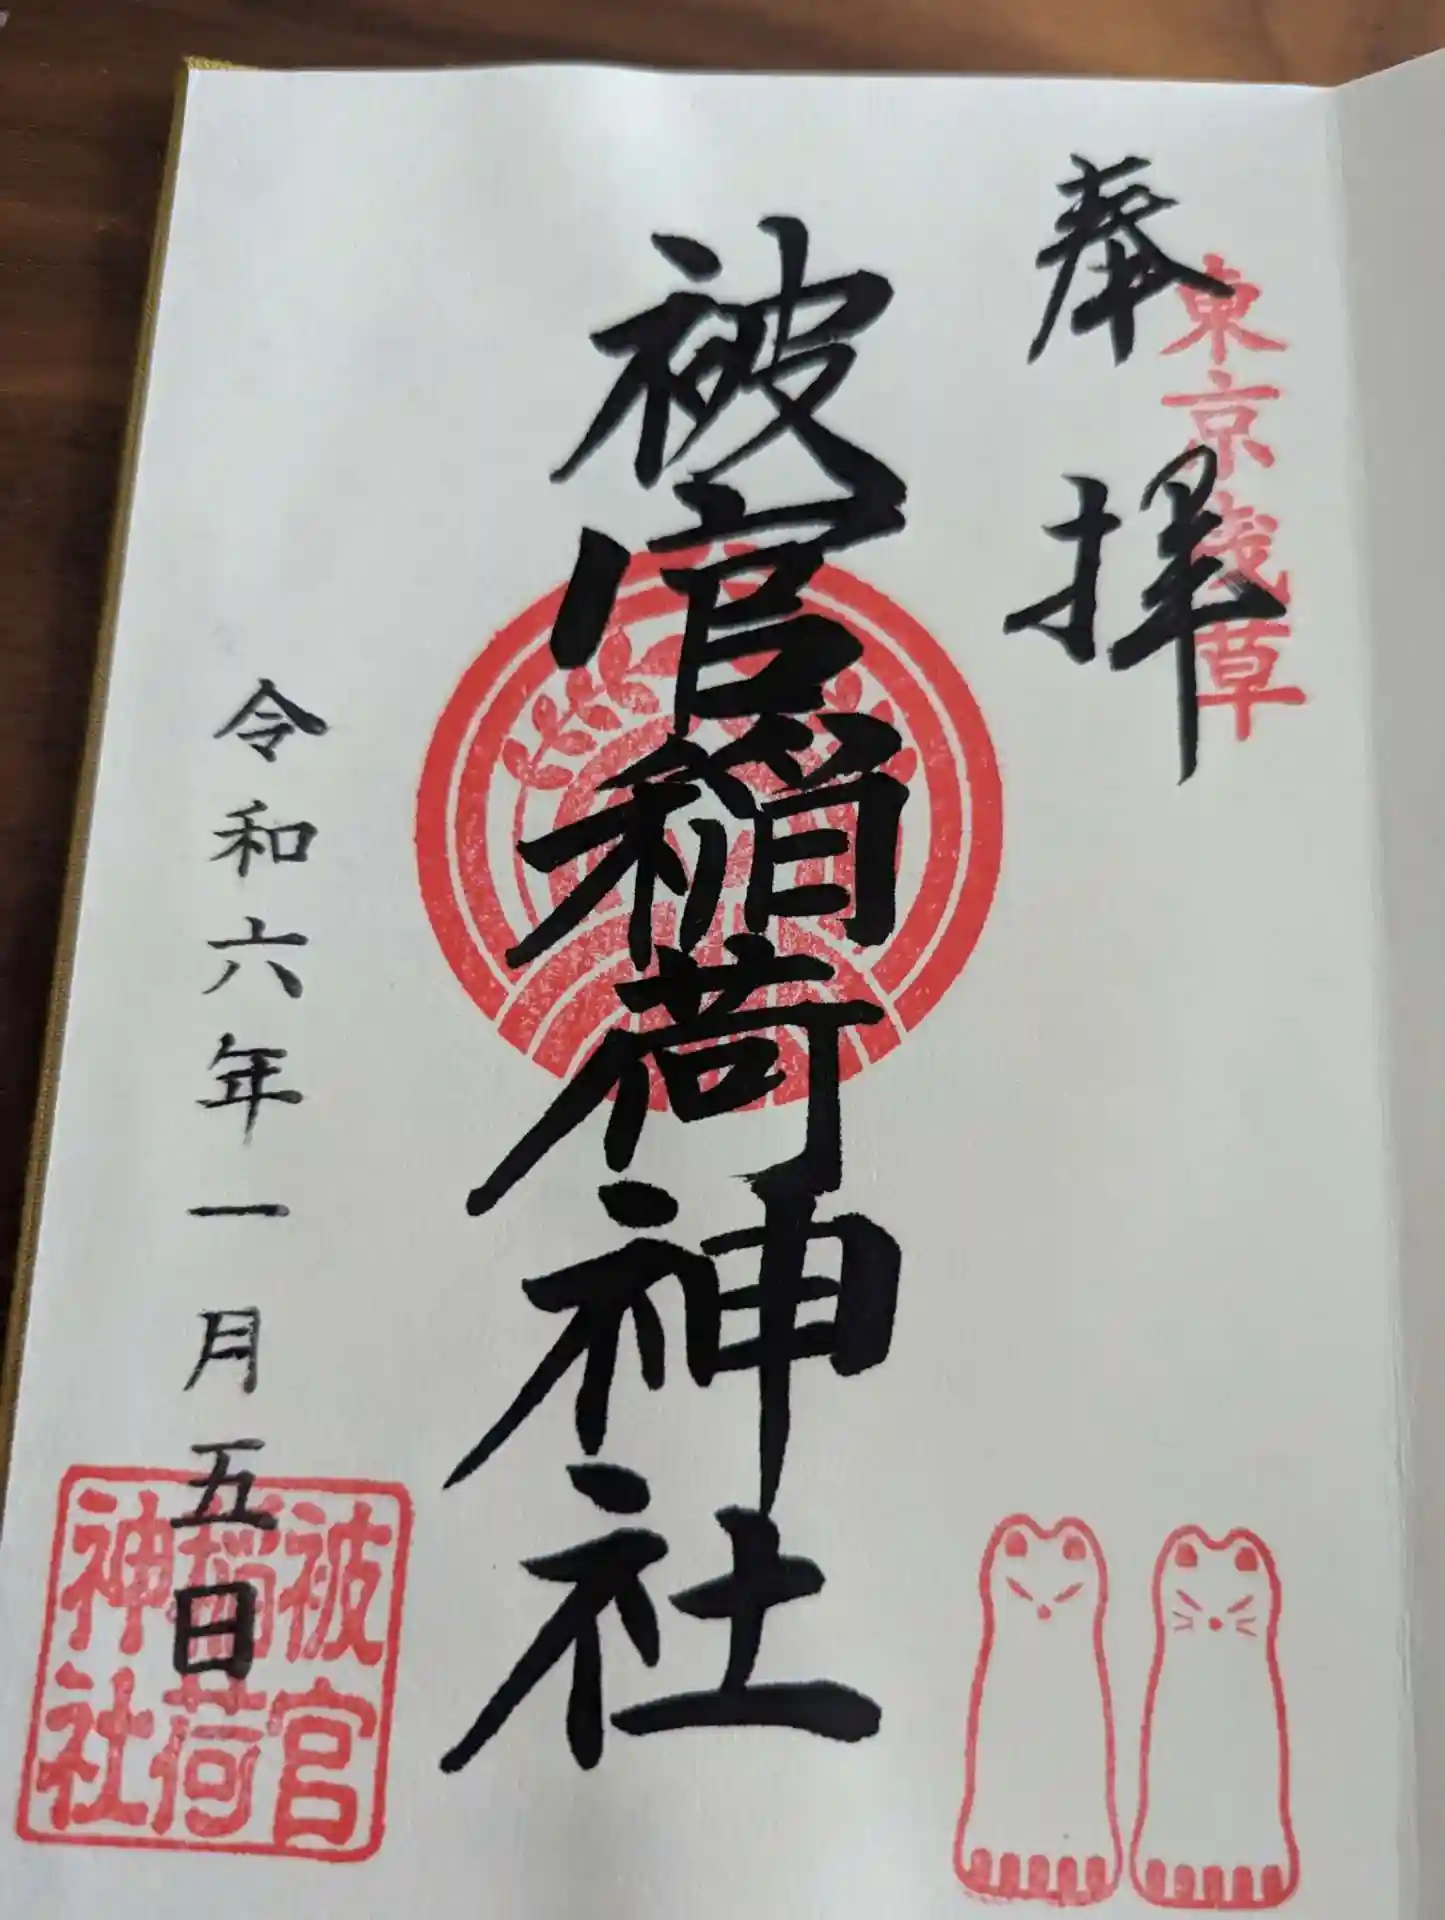 東京浅草
奉拝
被官稲荷神社
令和六年一月五日
被官
稲荷
神社